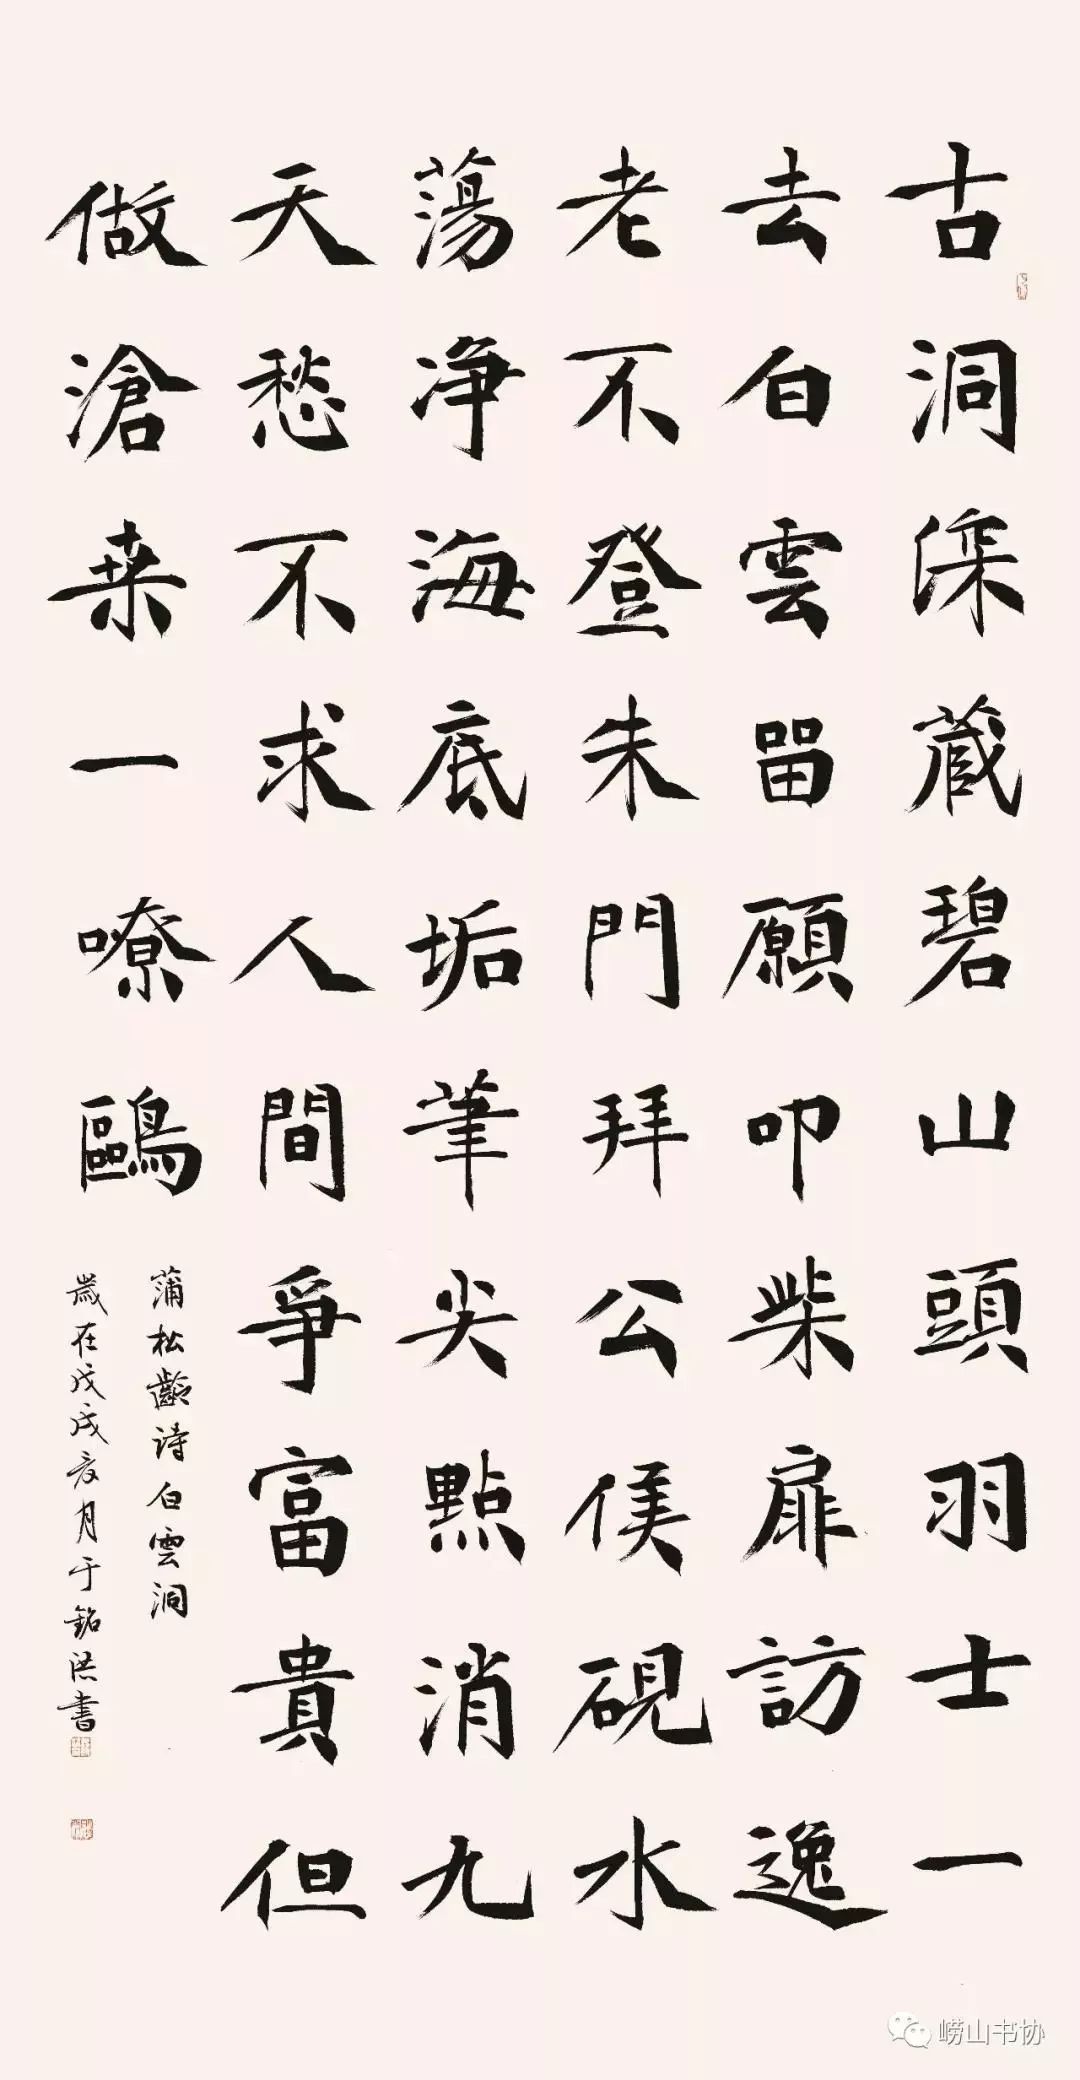 古洞深藏碧山頭羽士一
去白雲留願叩柴扉訪逸
老不登朱門拜公侯硯水
蕩净海底垢筆尖點消九
天愁不求人間爭富貴但
做滄桒一嘹鷗
蒲松齡詩白雲洞
歲在戊戌夏月于銘洪書
崂山书协